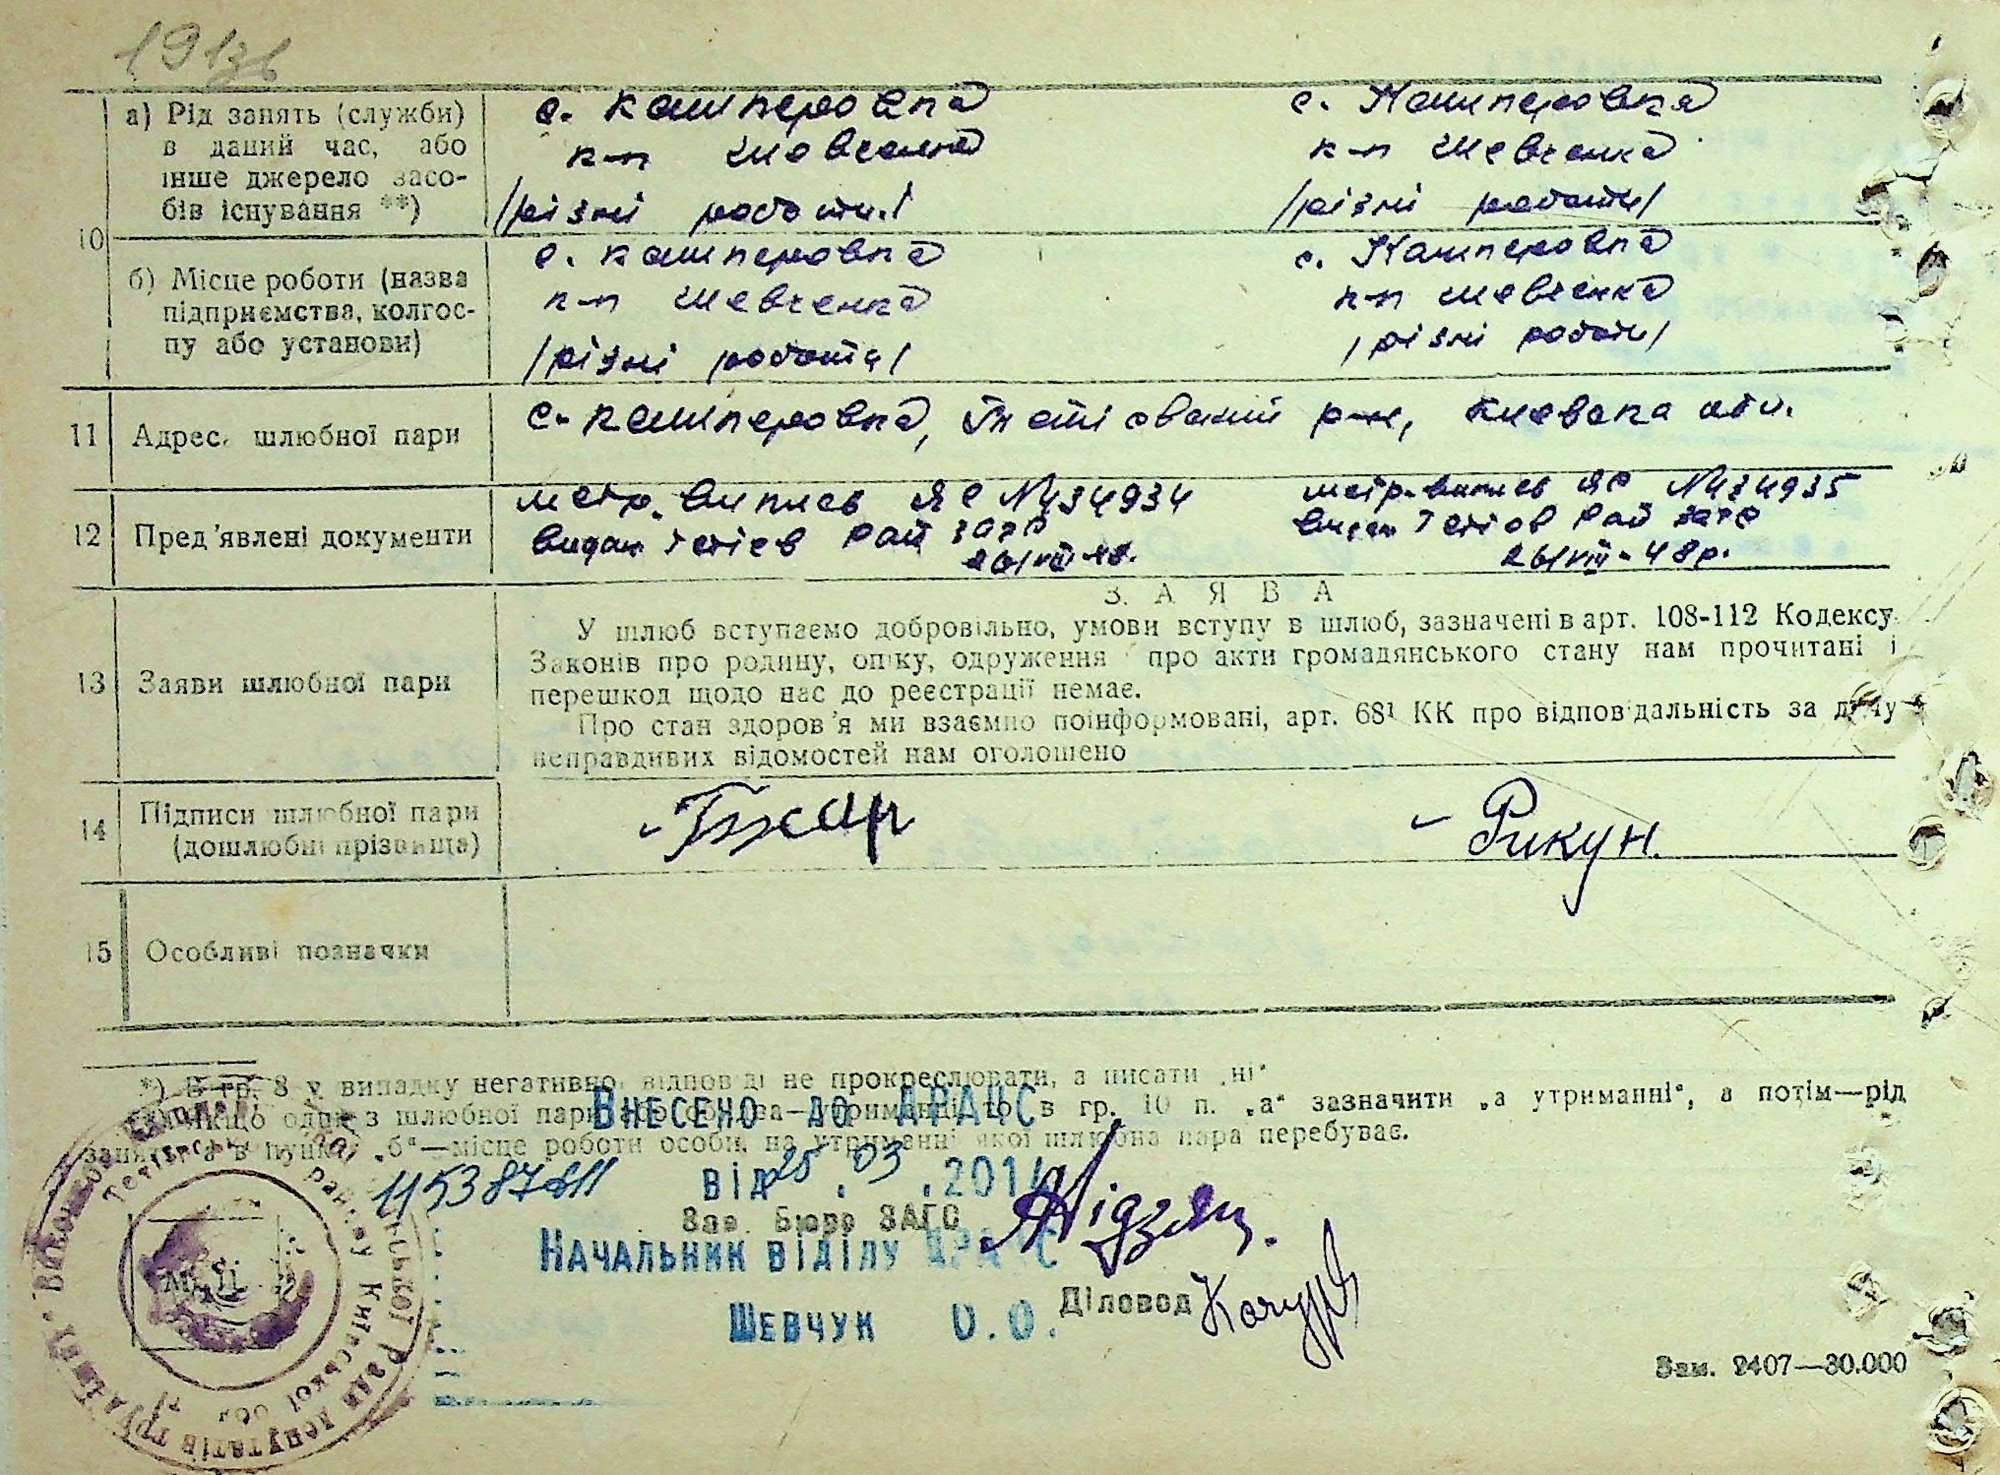 191зв
а) Рід занять (служби) в даний час, або інше джерело засобів існування **)
с. Кашперовка с. Кашперовка
к-п Шевченка к-п Шевченка
/різні роботи/ /різні роботи/
10
б) Місце роботи (назва підприємства, колгоспу або установи)
с. Кашперовка с. Кашперовка
к-п Шевченка к-п Шевченка
/різні роботи/ /різні роботи/
11 Адрес. шлюбної пари с. Кашперовка, р-н,
12 Пред'явлені документи
метр. випись ЯС №434934 метр. випись ЯС №434935
видан Тетіев Рай ЗАГС видан Тетіов Рай ЗАГС
26/VIII-48. 26/VIII-48р.
13 Заяви шлюбної пари
ЗАЯВА
У шлюб вступаємо добровільно, умови вступу в шлюб, зазначені в арт. 108-112 Кодексу
Законів про родину, опіку, одруження про акти громадянського стану нам прочитані і
перешкод щодо нас до реєстрації немає.
Про стан здоров'я ми взаємно поінформовані, арт. 68¹ КК про відповідальність за дачу
неправдивих відомостей нам оголошено
14 Підписи шлюбної пари (дошлюбні прізвища) Рикун.
15 Особливі позначки
*) В гр. 8 у випадку негативно відповіді не прокреслювати, а писати „ні“
Якщо один з шлюбної пари або оба на утриманні, то в гр. 10 п. „а“ зазначити „а утриманні“, а потім—рід
занять, а в пункті „б“—місце роботи особи, на утриманні якої шлюбна пара перебуває.
Внесено до ДРАЦС
від 25.03.2014
Зав. Бюро ЗАГС
Начальник відділу ДРАЦС
Шевчук О.О.
Діловод
Зам. 2407—30.000